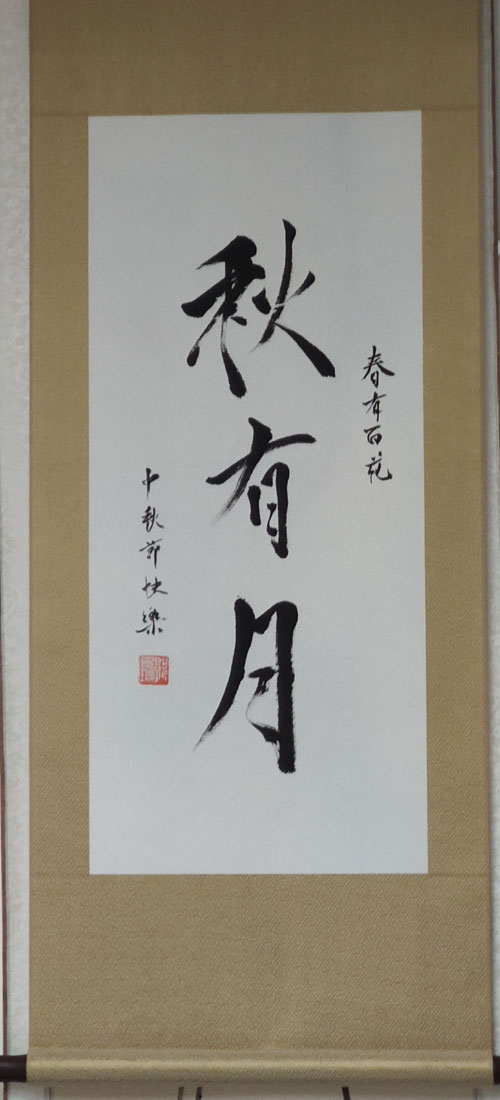 春有百花
秋有月
中秋節快樂